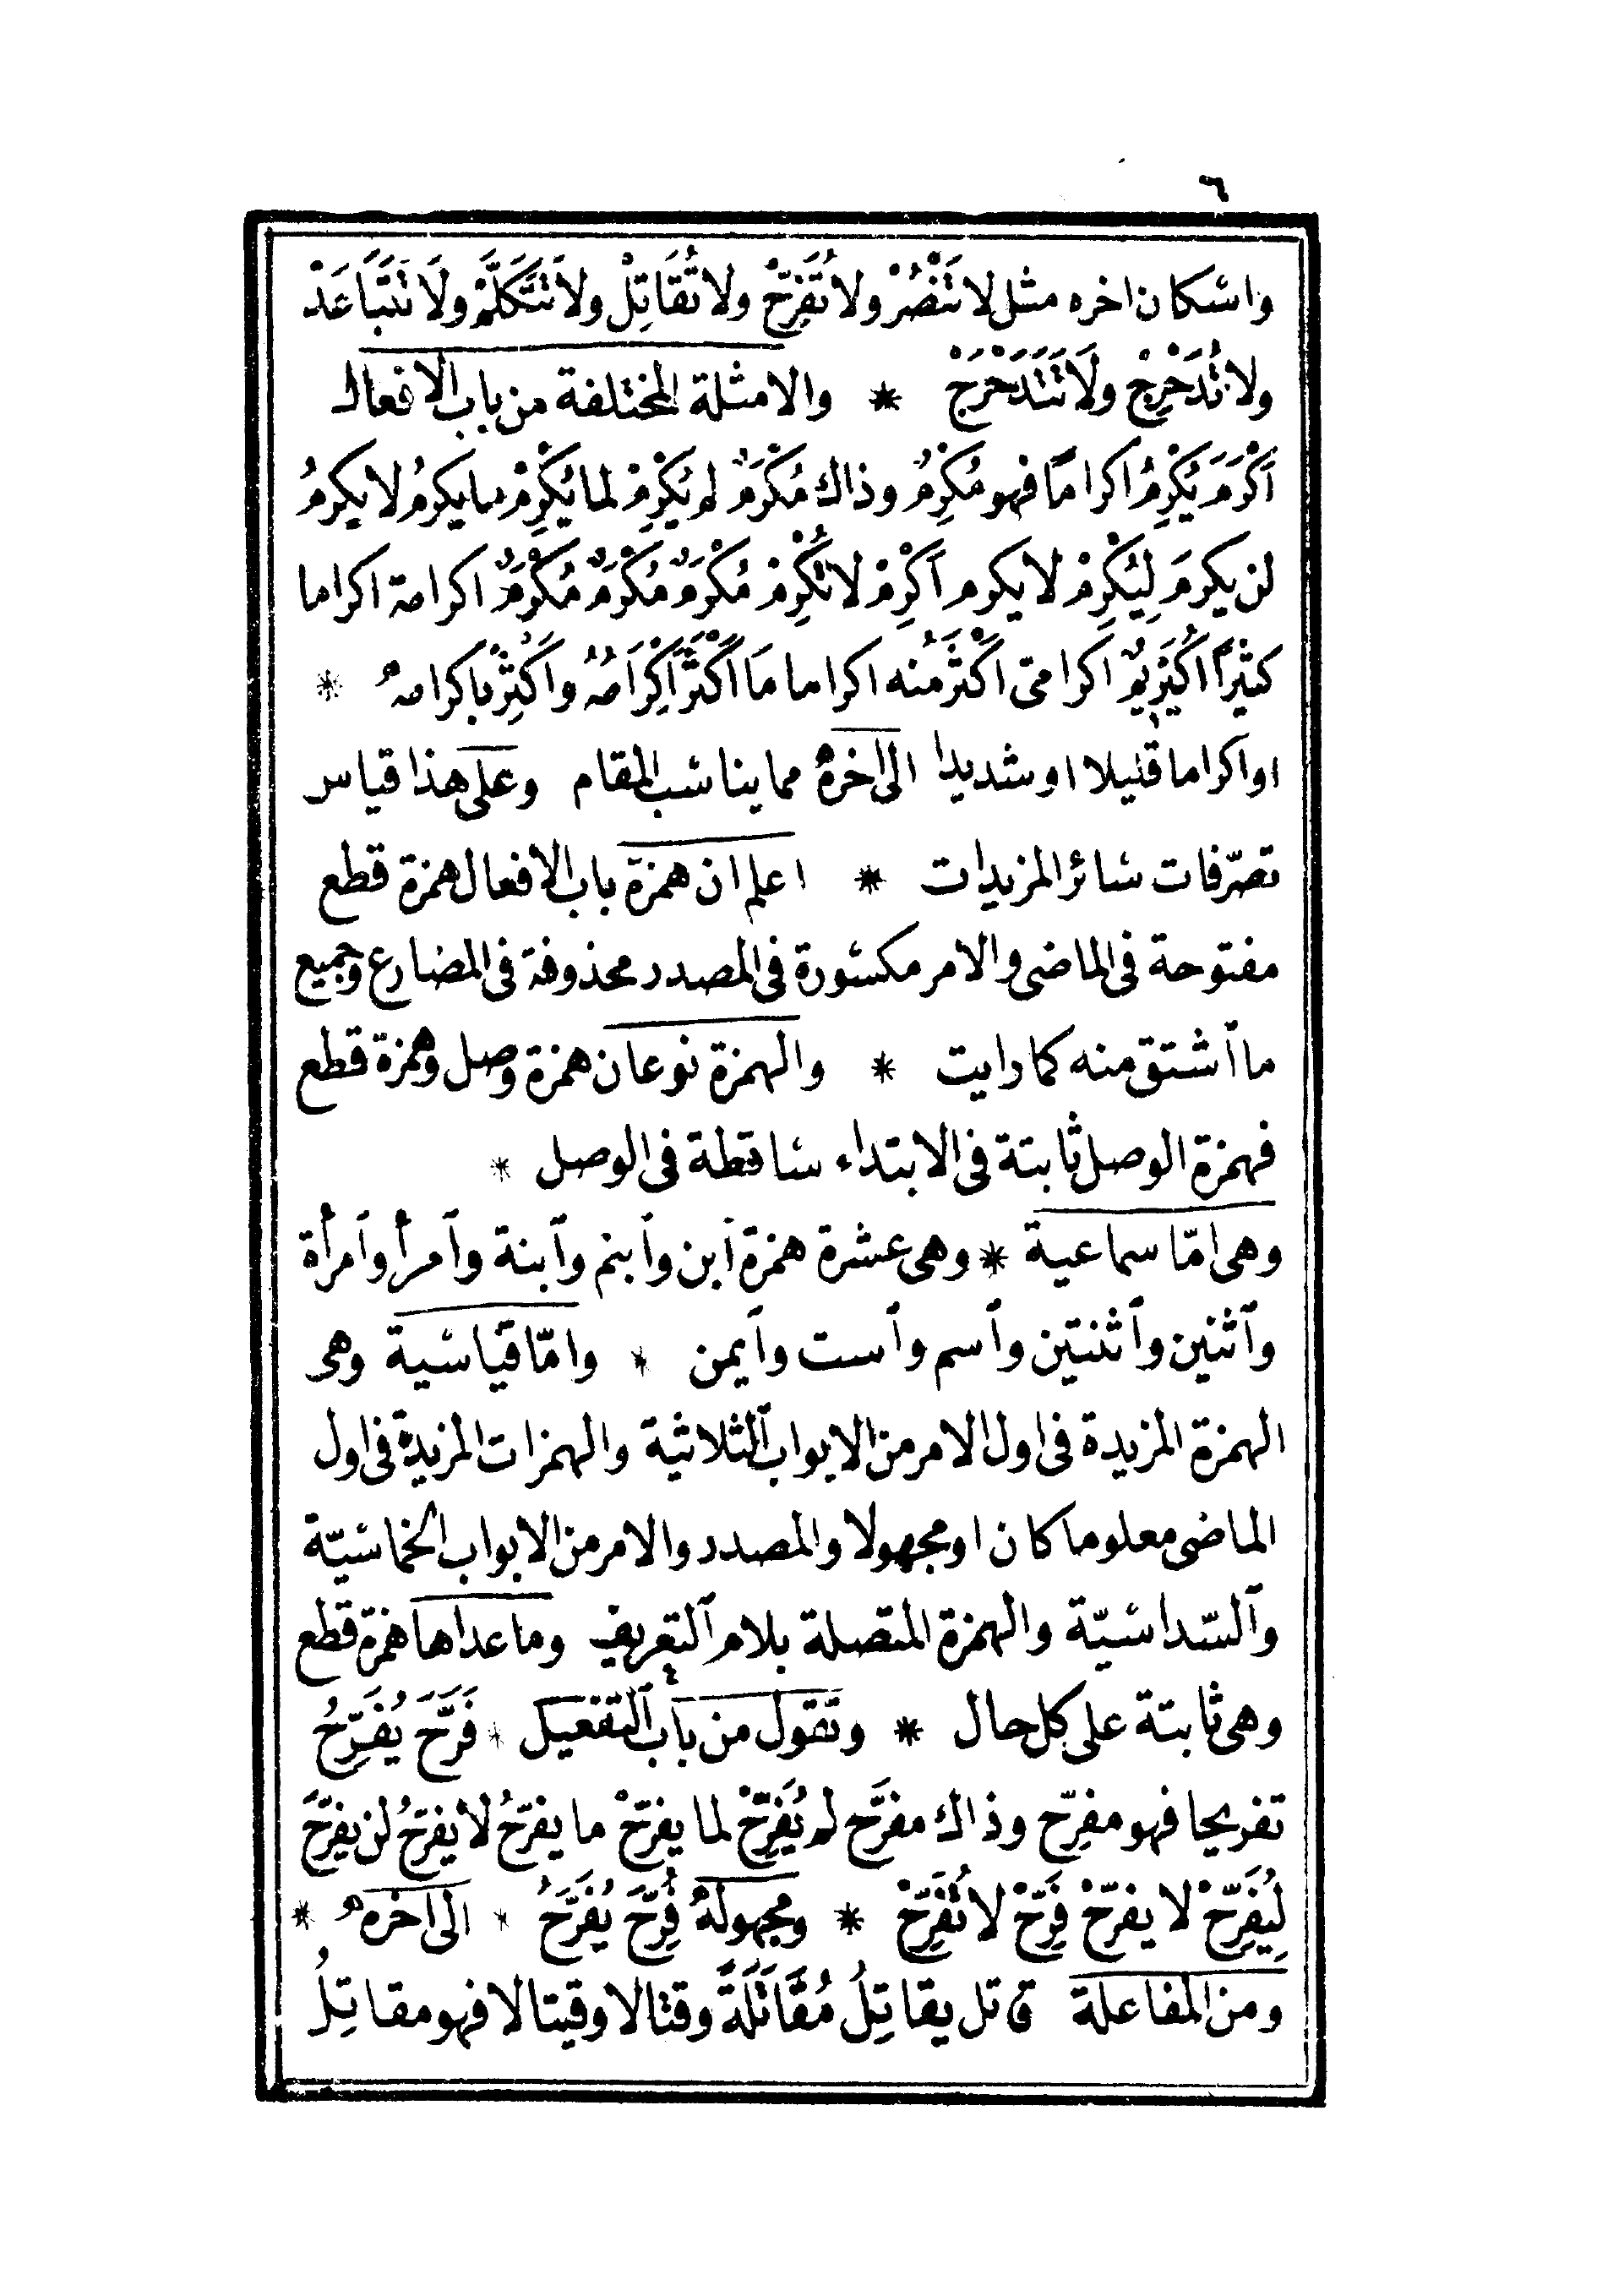 ٦
واسكان اخره مثل لا تَنْصُرْ ولا تُفَرِّحْ ولا تُقَاتِلْ ولَا تَتَكَلَّمْ ولَا تَتَبَاعَدْ
ولا تُدَحْرِجْ ولَا تَتَدَحْرَجْ * والامثلة المختلفة من باب الافعال
اَكْرَمَ يُكْرِمُ اكرامًا فهو مُكْرِمٌ وذاك مُكْرَمٌ لم يُكْرِمْ لما يُكْرِمْ ما يكرمُ لا يكرمُ
لن يكرمَ لِيُكْرِمْ لا يكرم اَكْرِمْ لا تُكْرِمْ مُكْرَمٌ مُكْرَمٌ مُكْرَمٌ اكرامة اكراما
كثيرًا اُكَيْرِيمٌ اكرامىّ اَكْثَرُ مِنْه اكراما مَا اَكْثَرَ اِكْرَامَهُ واَكْثِرْ باكرامهٖ *
او اكراما قليلا او شديدا الى اخرهٖ مما يناسب المقام وعلى هذا قياس
تصرّفات سائر المزيدات * اعلم ان همزة باب الافعال همزة قطع
مفتوحة فى الماضى والامر مكسورة فى المصدر محذوفة فى المضارع وجميع
ما ٱشتق منه كما رايت * والهمزة نوعان همزة وصل وهمزة قطع
فهمزة الوصل ثابتة فى الابتداء ساقطة فى الوصل *
وهى امّا سماعية * وهى عشرة همزة ٱبن وٱبنم وٱبنة وٱمرأ وٱمرأة
وٱثنين وٱثنتين وٱسم وٱست وٱيمن * وامّا قياسية وهى
الهمزة المزيدة فى اول الامر من الابواب ٱلثلاثية والهمزات المزيدة فى اول
الماضى معلوما كان او مجهولا والمصدر والامر من الابواب الخماسيّة
وٱلسّداسيّة والهمزة المتصلة بلام ٱلتعريف وما عداها همزة قطع
وهى ثابتة على كل حال * وتقول من باب ٱلتفعيل * فَرَّحَ يُفَرِّحُ
تفريحا فهو مفرِّح وذاك مفرَّح لم يُفَرِّحْ لما يفرّحْ ما يفرّحُ لا يفرّحُ لن يفرّحَ
لِيُفَرِّحْ لا يفرّحْ فَرِّحْ لا تُفَرِّحْ * ومجهولهٗ فُرِّحَ يُفَرَّحُ * الى اخرهٖ *
ومن المفاعلة قاتل يقاتِلُ مُقَاتَلَةً وقتالا وقيتالا فهو مقاتِلُ